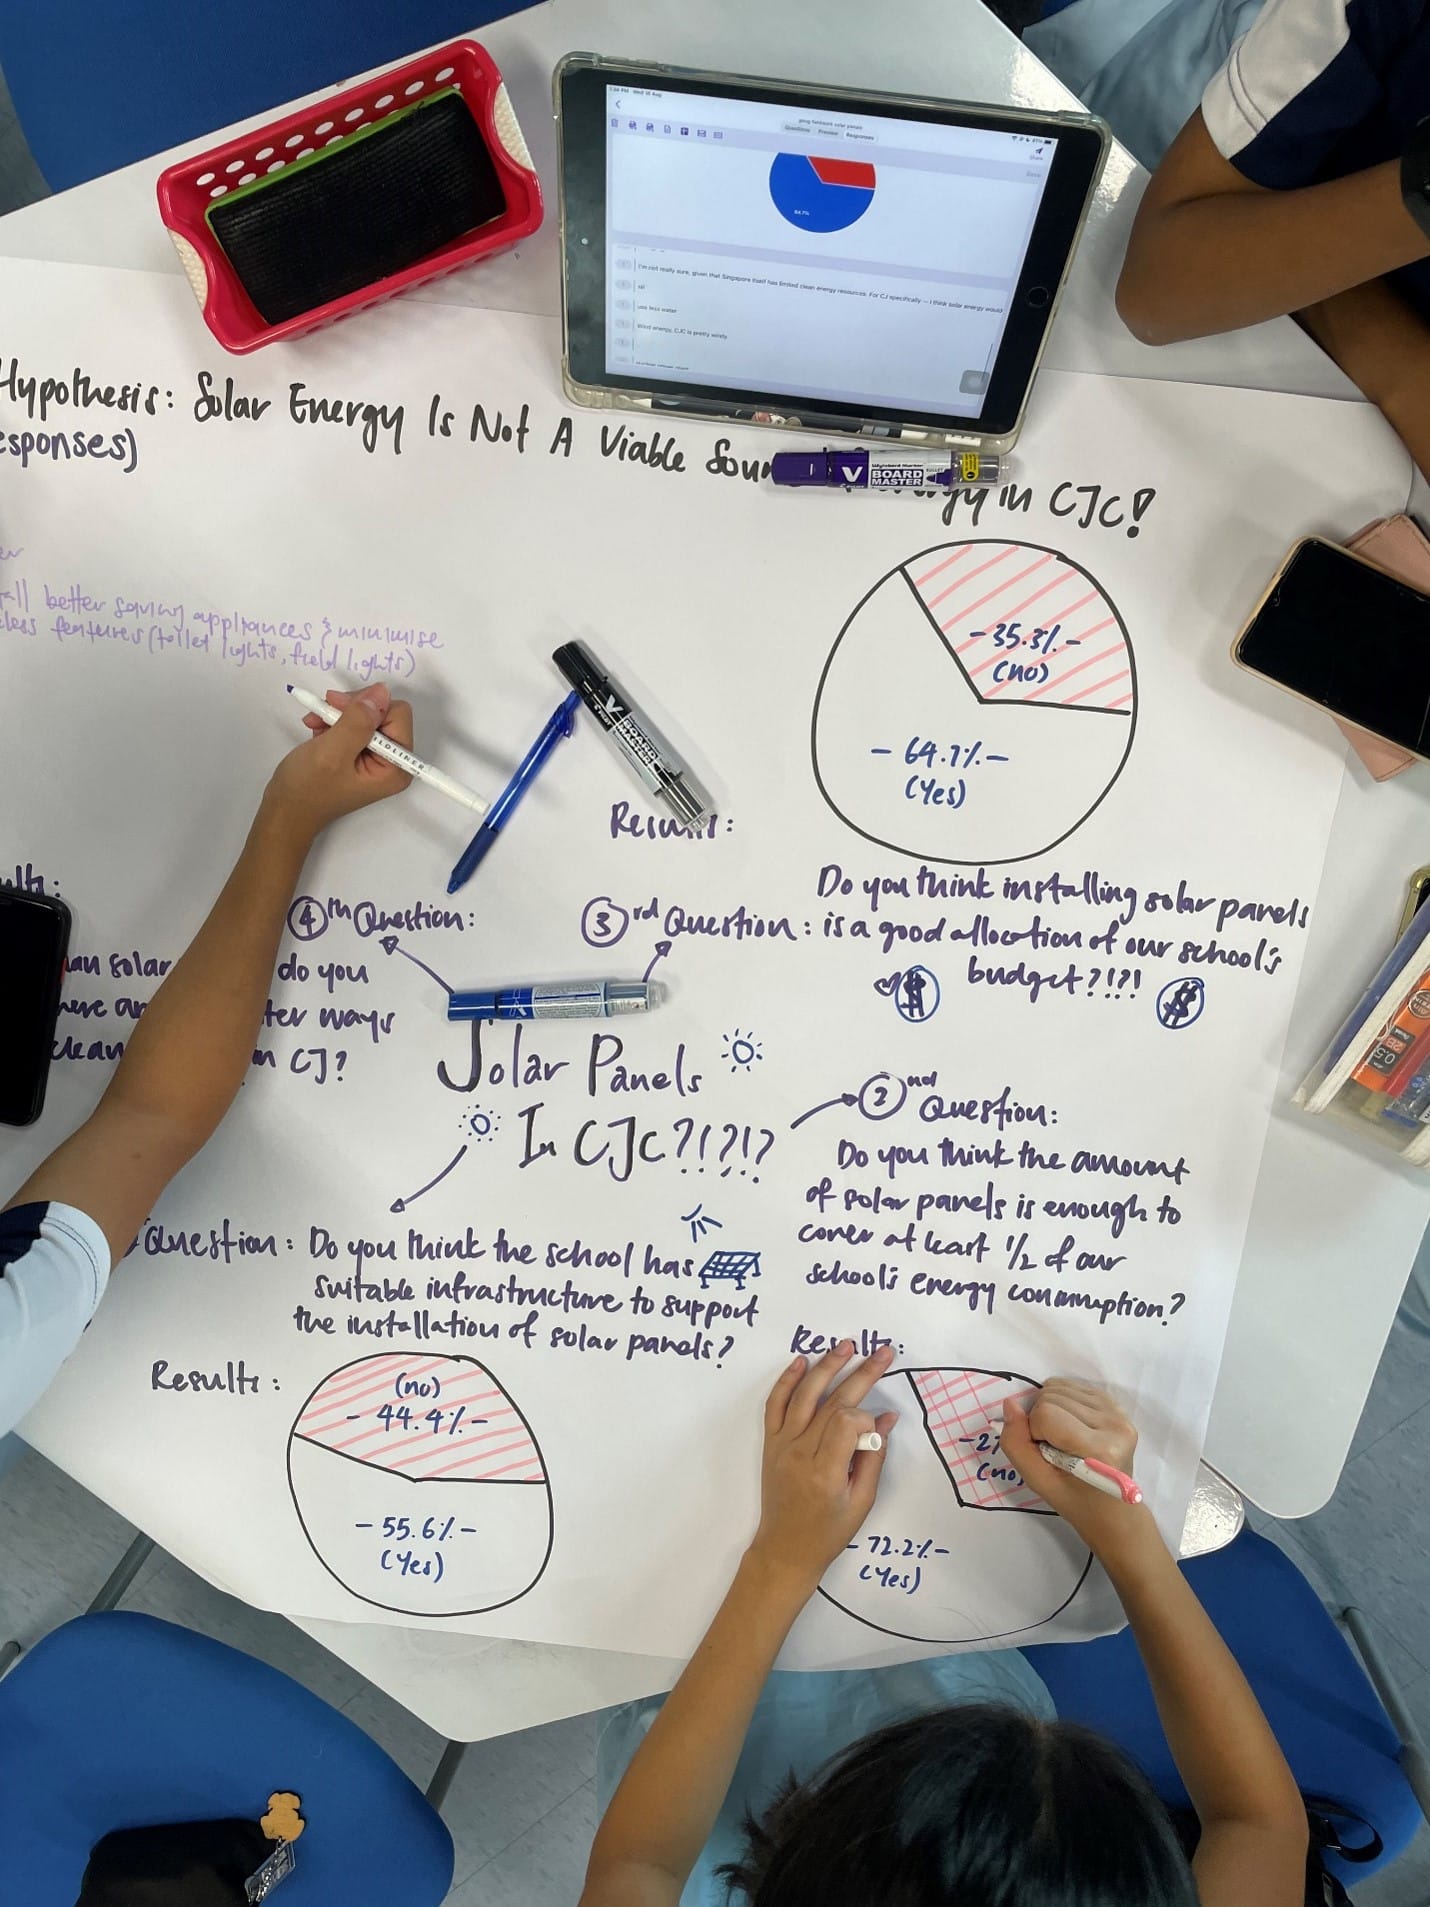 1:34 PM Wed 16 Aug
geog fieldwork solar panels
Questions Preview Responses
Share
Save
64.7%
I'm not really sure, given that Singapore itself has limited clean energy resources. For CJ specifically — I think solar energy would
use less water
Wind energy, CJC is pretty windy
Hypothesis: Solar Energy Is Not A Viable Sour in CJC!
esponses)
V BOARD MASTER
better saving appliances & minimise
less features (toilet lights, field lights)
- 35.3% -
(no)
- 64.7% -
(Yes)
ILDLINER
V BOARD MASTER
Results:
4th Question:
do you
ways
clean in CJ?
3rd Question: Do you think installing solar panels
is a good allocation of our school's
budget?!?!
$ $
Solar Panels
In CJC?!?!?
2nd Question:
Do you think the amount
of solar panels is enough to
cover at least 1/2 of our
school's energy consumption?
Results:
- 2
(no)
- 72.2% -
(Yes)
Question: Do you think the school has
suitable infrastructure to support
the installation of solar panels?
Results:
(no)
- 44.4% -
- 55.6% -
(Yes)
2B
0.5